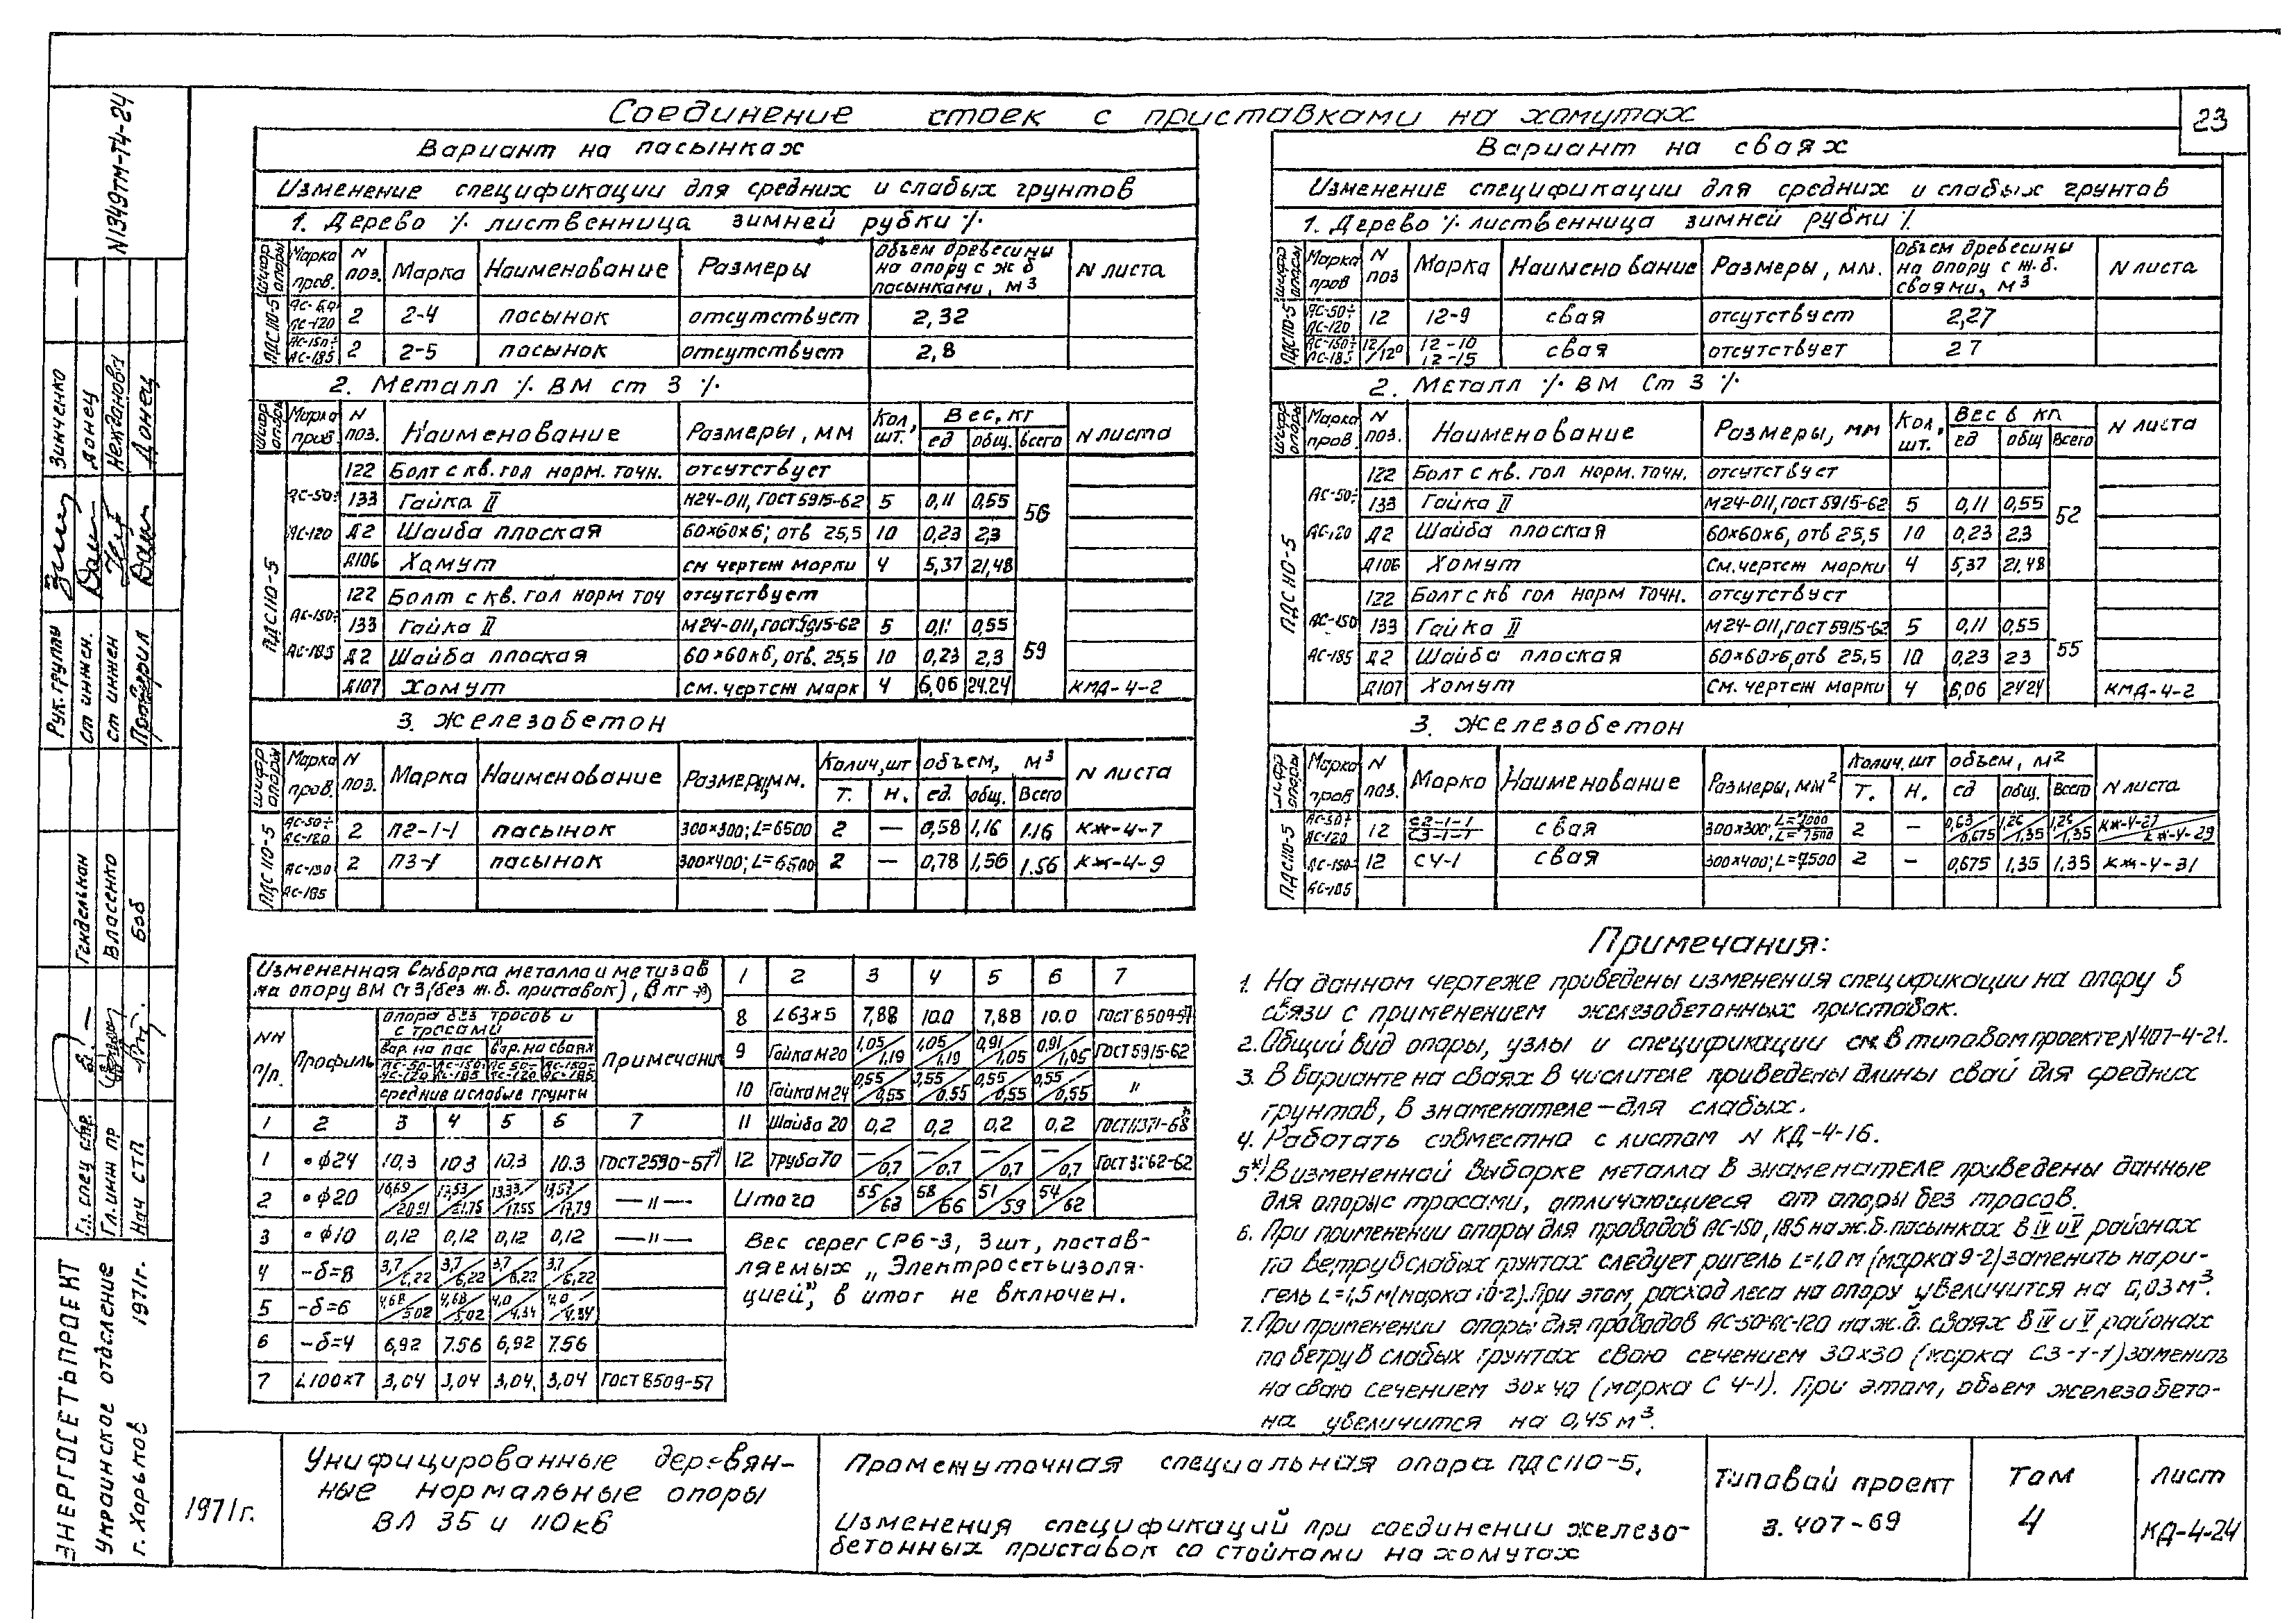 Соединение стоек с приставками на хомутах
23
Вариант на пасынках
Изменение спецификации для средних и слабых грунтов
1. Дерево ٪ лиственница зимней рубки ٪
Шифр опоры Марка пров. N поз. Марка Наименование Размеры Объем древесины на опору с ж б пасынками, м3 N листа
ПДС110-5 АС-50÷ АС-120 2 2-4 пасынок отсутствует 2,32
АС-150÷ АС-185 2 2-5 пасынок отсутствует 2,8
2. Металл ٪ ВМ ст 3 ٪
Шифр опоры Марка пров N поз. Наименование Размеры, мм Кол, шт. Вес, кг ед общ. всего N листа
ПДС110-5 АС-50÷ АС-120
122 Болт с кв. гол норм. точн. отсутствует
133 Гайка II М24-011, ГОСТ 5915-62 5 0,11 0,55 56
Д2 Шайба плоская 60×60×6; отв 25,5 10 0,23 2,3
Д106 Хомут см чертеж марки 4 5,37 21,48
АС-150÷ АС-185
122 Болт с кв. гол норм точ отсутствует
133 Гайка II М24-011, ГОСТ 5915-62 5 0,11 0,55
Д2 Шайба плоская 60×60×6, отв. 25,5 10 0,23 2,3 59
Д107 Хомут см. чертеж марк 4 6,06 24.24 КМД-4-2
3. Железобетон
Шифр опоры Марка пров. N поз. Марка Наименование Размеры, мм. Колич, шт Т. Н. объем, м3 ед. общ. Всего N листа
ПДС 110-5 АС-50÷ АС-120 2 П2-1-1 пасынок 300×300; L=6500 2 — 0,58 1,16 1.16 КЖ-4-7
АС-150 АС-185 2 П3-1 пасынок 300×400; L=6500 2 — 0,78 1,56 1.56 КЖ-4-9
Вариант на сваях
Изменение спецификации для средних и слабых грунтов
1. Дерево ٪ лиственница зимней рубки ٪
Шифр опоры Марка пров N поз Марка Наименование Размеры, мм. Объем древесины на опору с ж.б. сваями, м3 N листа
ПДС110-5 АС-50÷ АС-120 12 12-9 свая отсутствует 2,27
АС-150÷ АС-185 12/12а 12-10 12-15 свая отсутствует 2 7
2. Металл ٪ ВМ Ст 3 ٪
Шифр опоры Марка пров. N поз. Наименование Размеры, мм Кол, шт. Вес в кг ед общ Всего N листа
ПДС 110-5 АС-50÷ АС-120
122 Болт с кв. гол норм. точн. отсутствует
133 Гайка II М24-011, ГОСТ 5915-62 5 0,11 0,55 52
Д2 Шайба плоская 60×60×6, отв 25,5 10 0,23 2,3
Д106 Хомут См. чертеж марки 4 5,37 21,48
АС-150 АС-185
122 Болт с кв гол норм точн. отсутствует
133 Гайка II М24-011, ГОСТ 5915-62 5 0,11 0,55
Д2 Шайба плоская 60×60×6, отв 25,5 10 0,23 23 55
Д107 Хомут См. чертеж марки 4 6,06 2424 КМД-4-2
3. Железобетон
Шифр опоры Марка пров N поз. Марка Наименование Размеры, мм2 Колич. шт Т. Н. объем, м2 ед общ. Всего N листа
ПДС110-5 АС-50÷ АС-120 12 С2-1-1 С3-1-1 свая 300×300; L=7000 L=7500 2 — 0,63/0,675 1,26/1,35 1,26/1,35 КЖ-4-27 КЖ-4-29
АС-150÷ АС-185 12 С4-1 свая 300×400; L=7500 2 — 0,675 1,35 1,35 КЖ-4-31
Измененная выборка металла и метизов
на опору ВМ Ст3 (без ж.б. приставок), в кг *)
NN п/п. Профиль опора без тросов и с тросами Примечани
вар. на пас вар. на сваях
АС-50- АС-120 АС-150- АС-185 АС 50- АС-120 АС-150- АС-185
средние и слабые грунты
1 2 3 4 5 6 7
1 ∘ ϕ24 10,3 10 3 10.3 10.3 ГОСТ 2590-57*)
2 ∘ ϕ20 16,69/20.91 13,53/21.75 13,33/17.55 13,57/17.79 —〃—
3 ∘ ϕ10 0,12 0,12 0,12 0,12 —〃—
4 –δ=8 3,7/6,22 3.7/6,22 3.7/6.22 3.7/6,22
5 –δ=6 4,68/5 02 4,68/5,02 4,0/4,34 4,0/4.34
6 –δ=4 6,92 7.56 6,92 7.56
7 L 100×7 3,04 3,04 3,04. 3,04 ГОСТ 8509-57
1 2 3 4 5 6 7
8 L63×5 7,88 10.0 7,88 10.0 ГОСТ 8509-57
9 Гайка М20 1,05/1,19 1,05/1,19 0,91/1,05 0,91/1,05 ГОСТ 5915-62
10 Гайка М24 0,55/0,55 0,55/0,55 0,55/0,55 0,55/0,55 〃
11 Шайба 20 0,2 0,2 0,2 0,2 ГОСТ 11371-68
12 труба 70 —/0,7 —/0,7 —/0,7 —/0,7 ГОСТ 3262-62
Итого 55/63 58/66 51/59 54/62
Вес серег СР6-3, 3 шт, постав-
ляемых „Электросетьизоля-
цией", в итог не включен.
Примечания:
1. На данном чертеже приведены изменения спецификации на опору в
связи с применением железобетонных приставок.
2. Общий вид опоры, узлы и спецификации см. в типовом проекте N407-4-21.
3. В варианте на сваях в числителе приведены длины свай для средних
грунтов, в знаменателе — для слабых.
4. Работать совместно с листом N КД-4-16.
5*) В измененной выборке металла в знаменателе приведены данные
для опоры с тросами, отличающиеся от опоры без тросов.
6. При применении опоры для проводов АС-150, 185 на ж.б. пасынках в IV и V районах
по ветру в слабых грунтах следует ригель L=1,0 м (марка 9-2) заменить на ри-
гель L=1,5 м (марка 10-2). При этом, расход леса на опору увеличится на 0,03 м3.
7. При применении опоры для проводов АС-50-АС-120 на ж.б. сваях в IV и V районах
по ветру в слабых грунтах сваю сечением 30×30 (марка С3-1-1) заменить
на сваю сечением 30×40 (марка С 4-1). При этом, объем железобето-
на увеличится на 0,45 м3.
1971г.
Унифицированные деревян-
ные нормальные опоры
ВЛ 35 и 110 кв
Промежуточная специальная опора ПДС110-5.
Изменения спецификаций при соединении железо-
бетонных приставок со стойками на хомутах
Типовой проект
3. 407-69
Том
4
Лист
КД-4-24
N1349тм-т4-24
Рук. группы Зинченко
Ст инжен. Донец
Ст инжен Нежданова
Проверил Донец
Гл. спец стр. Гендельман
Гл. инж пр Власенко
Нач СТП Боб
ЭНЕРГОСЕТЬПРОЕКТ
Украинское отделение
г. Харьков 1971г.